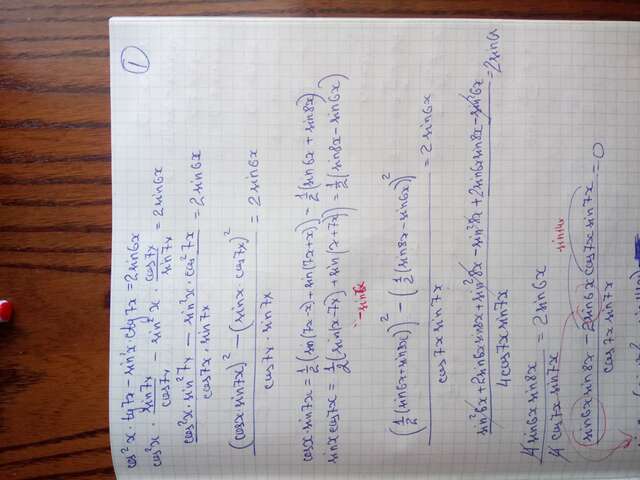 ①
cos²x · tg7x - sin²x ctg7x = 2sin6x
cos²x · sin7x/cos7x - sin²x · cos7x/sin7x = 2sin6x
(cos²x · sin²7x - sin²x · cos²7x)/(cos7x · sin7x) = 2sin6x
((cosx sin7x)² - (sinx cos7x)²)/(cos7x · sin7x) = 2sin6x
cosx · sin7x = 1/2(sin(7x-x) + sin(7x+x)) = 1/2(sin6x + sin8x)
sinx cos7x = 1/2(sin(x-7x) + sin(x+7x)) = 1/2(sin8x - sin6x)
-sin6x
((1/2(sin6x + sin8x))² - (1/2(sin8x - sin6x))²)/(cos7x sin7x) = 2sin6x
(sin²6x + 2sin6x sin8x + sin²8x - sin²8x + 2sin6x sin8x - sin²6x)/(4cos7x sin7x) = 2sin6
4sin6x sin8x/(4cos7x · sin7x) = 2sin6x
sin14x
(sin6x sin8x - 2sin6x cos7x sin7x)/(cos7x sin7x) = 0